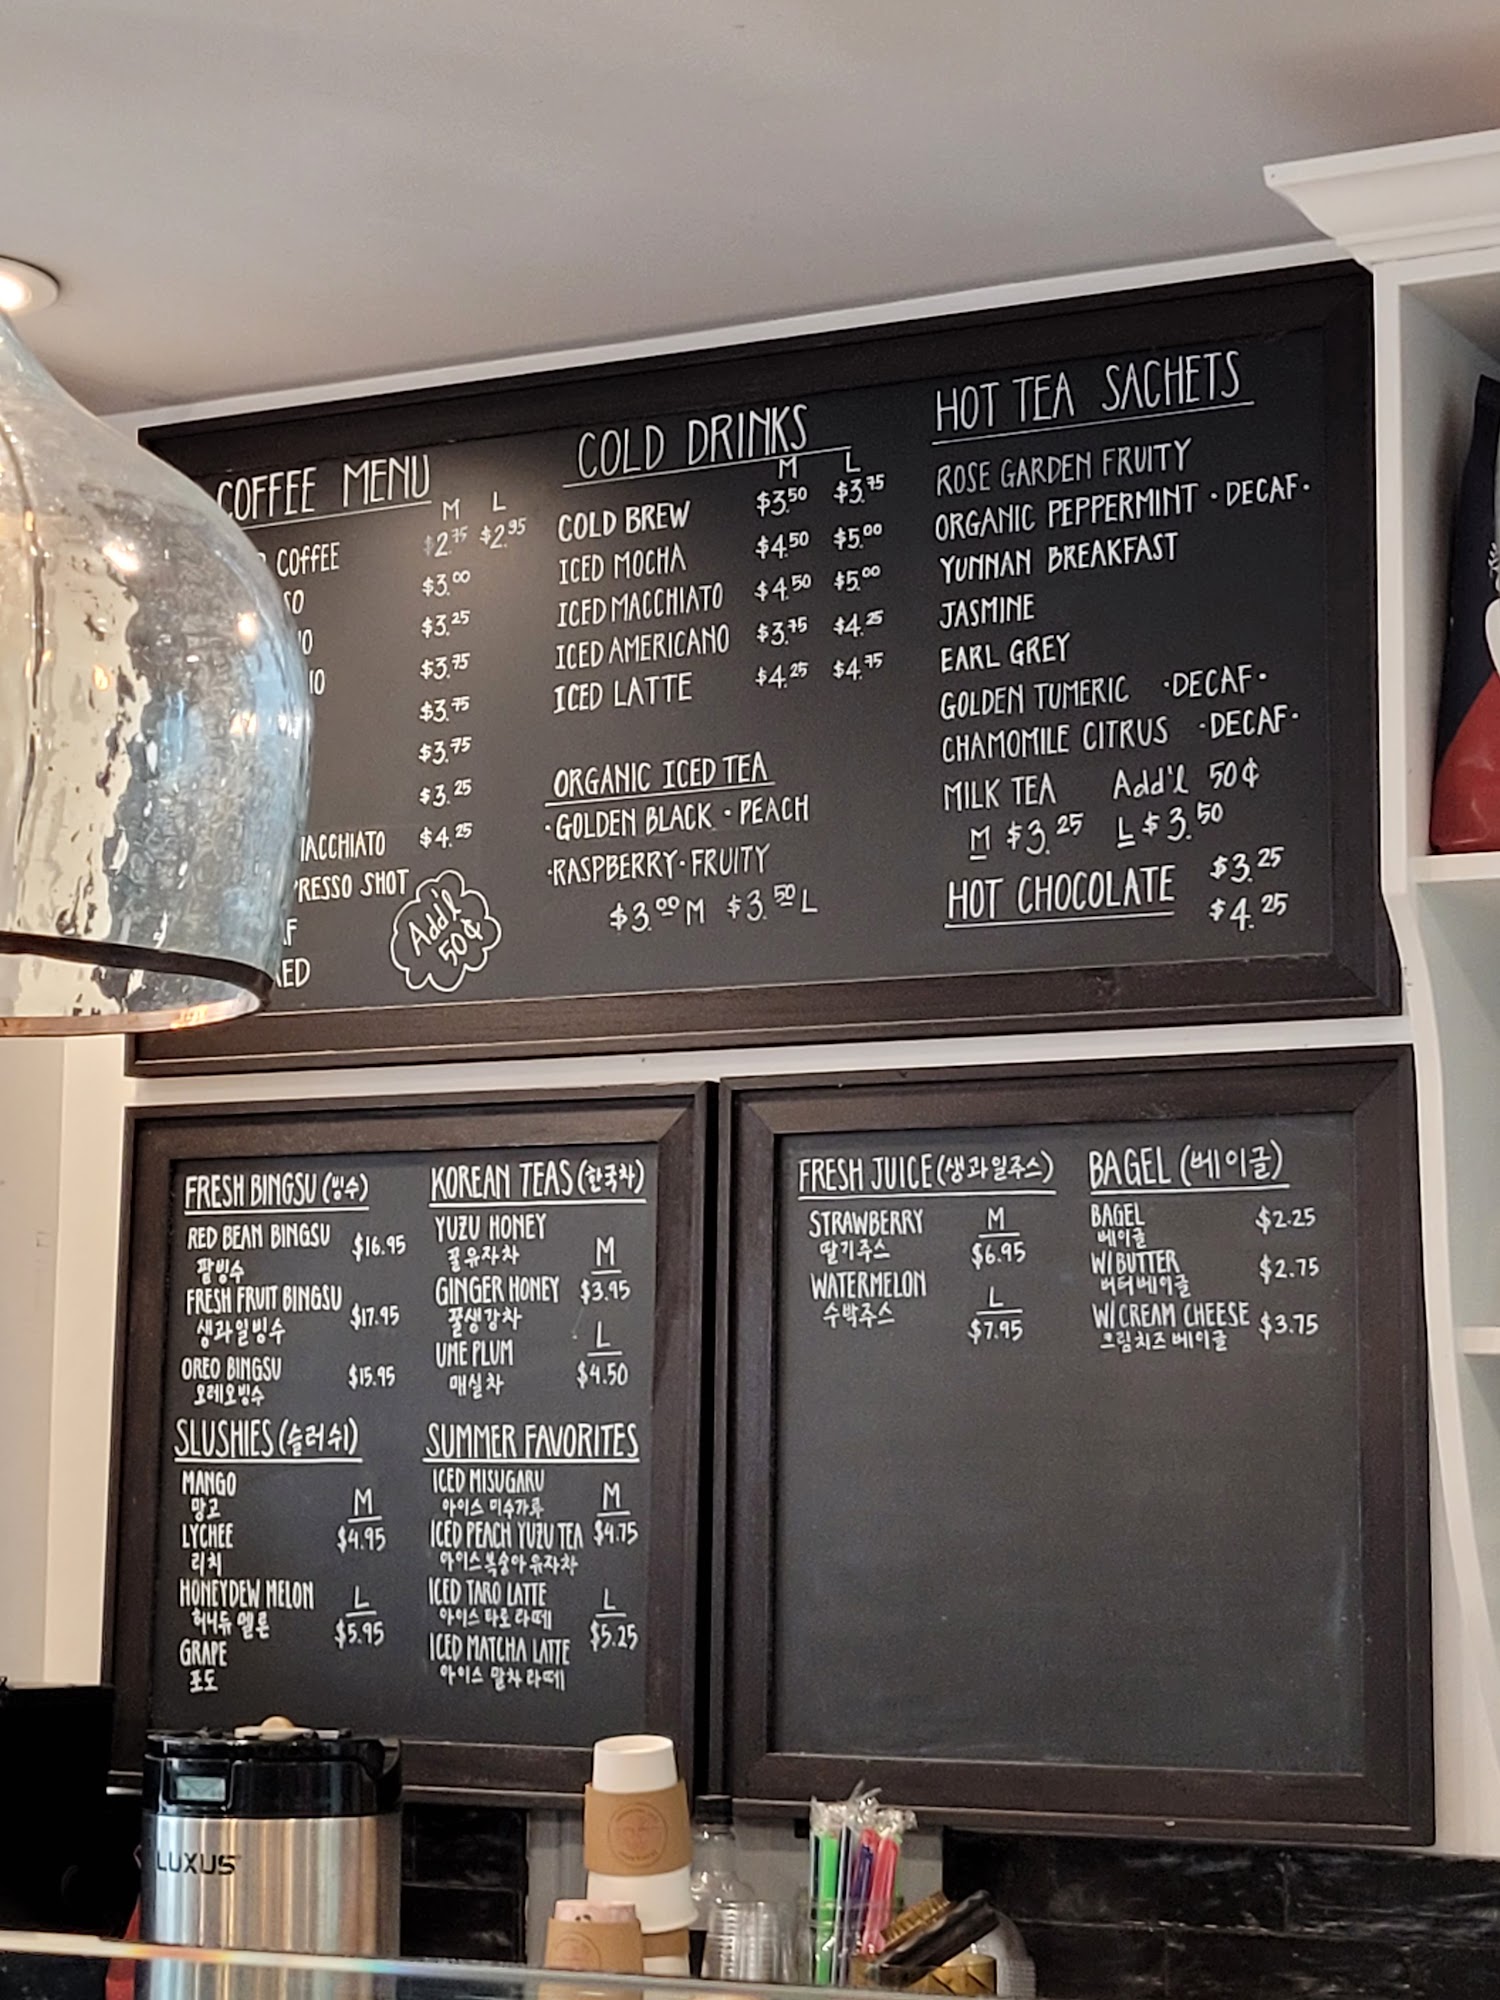 COFFEE MENU
M L
COFFEE $2.75 $2.95
$3.00
$3.25
$3.75
$3.75
$3.75
$3.25
$4.25
SHOT
Add'l
50¢
COLD DRINKS
M L
COLD BREW $3.50 $3.75
ICED MOCHA $4.50 $5.00
ICED MACCHIATO $4.50 $5.00
ICED AMERICANO $3.75 $4.25
ICED LATTE $4.25 $4.75
ORGANIC ICED TEA
·GOLDEN BLACK · PEACH
·RASPBERRY· FRUITY
$3.00 M $3.50 L
HOT TEA SACHETS
ROSE GARDEN FRUITY
ORGANIC PEPPERMINT ·DECAF·
YUNNAN BREAKFAST
JASMINE
EARL GREY
GOLDEN TUMERIC ·DECAF·
CHAMOMILE CITRUS ·DECAF·
MILK TEA Add'l 50¢
M $3.25 L $3.50
HOT CHOCOLATE $3.25
$4.25
FRESH BINGSU (빙수)
RED BEAN BINGSU $16.95
팥빙수
FRESH FRUIT BINGSU $17.95
생과일빙수
OREO BINGSU $15.95
오레오빙수
SLUSHIES (슬러쉬)
MANGO
망고 M
LYCHEE $4.95
리치
HONEYDEW MELON L
허니듀 멜론 $5.95
GRAPE
포도
KOREAN TEAS (한국차)
YUZU HONEY
꿀유자차 M
GINGER HONEY $3.95
꿀생강차
L
UME PLUM $4.50
매실차
SUMMER FAVORITES
ICED MISUGARU
아이스 미수가루 M
ICED PEACH YUZU TEA $4.75
아이스복숭아유자차
ICED TARO LATTE L
아이스 타로 라떼
$5.25
ICED MATCHA LATTE
아이스 말차 라떼
FRESH JUICE (생과일주스)
STRAWBERRY M
딸기주스 $6.95
WATERMELON L
수박주스 $7.95
BAGEL (베이글)
BAGEL $2.25
베이글
W/ BUTTER $2.75
버터베이글
W/ CREAM CHEESE $3.75
크림치즈 베이글
LUXUS